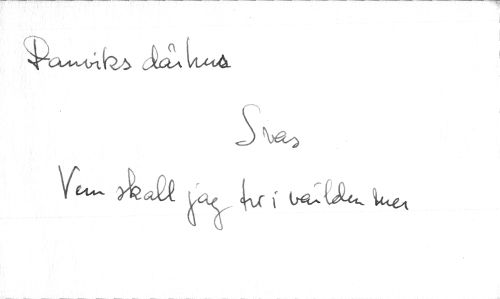 Ranviks dårhus
Svas
Vem skall jag tro i världen mer